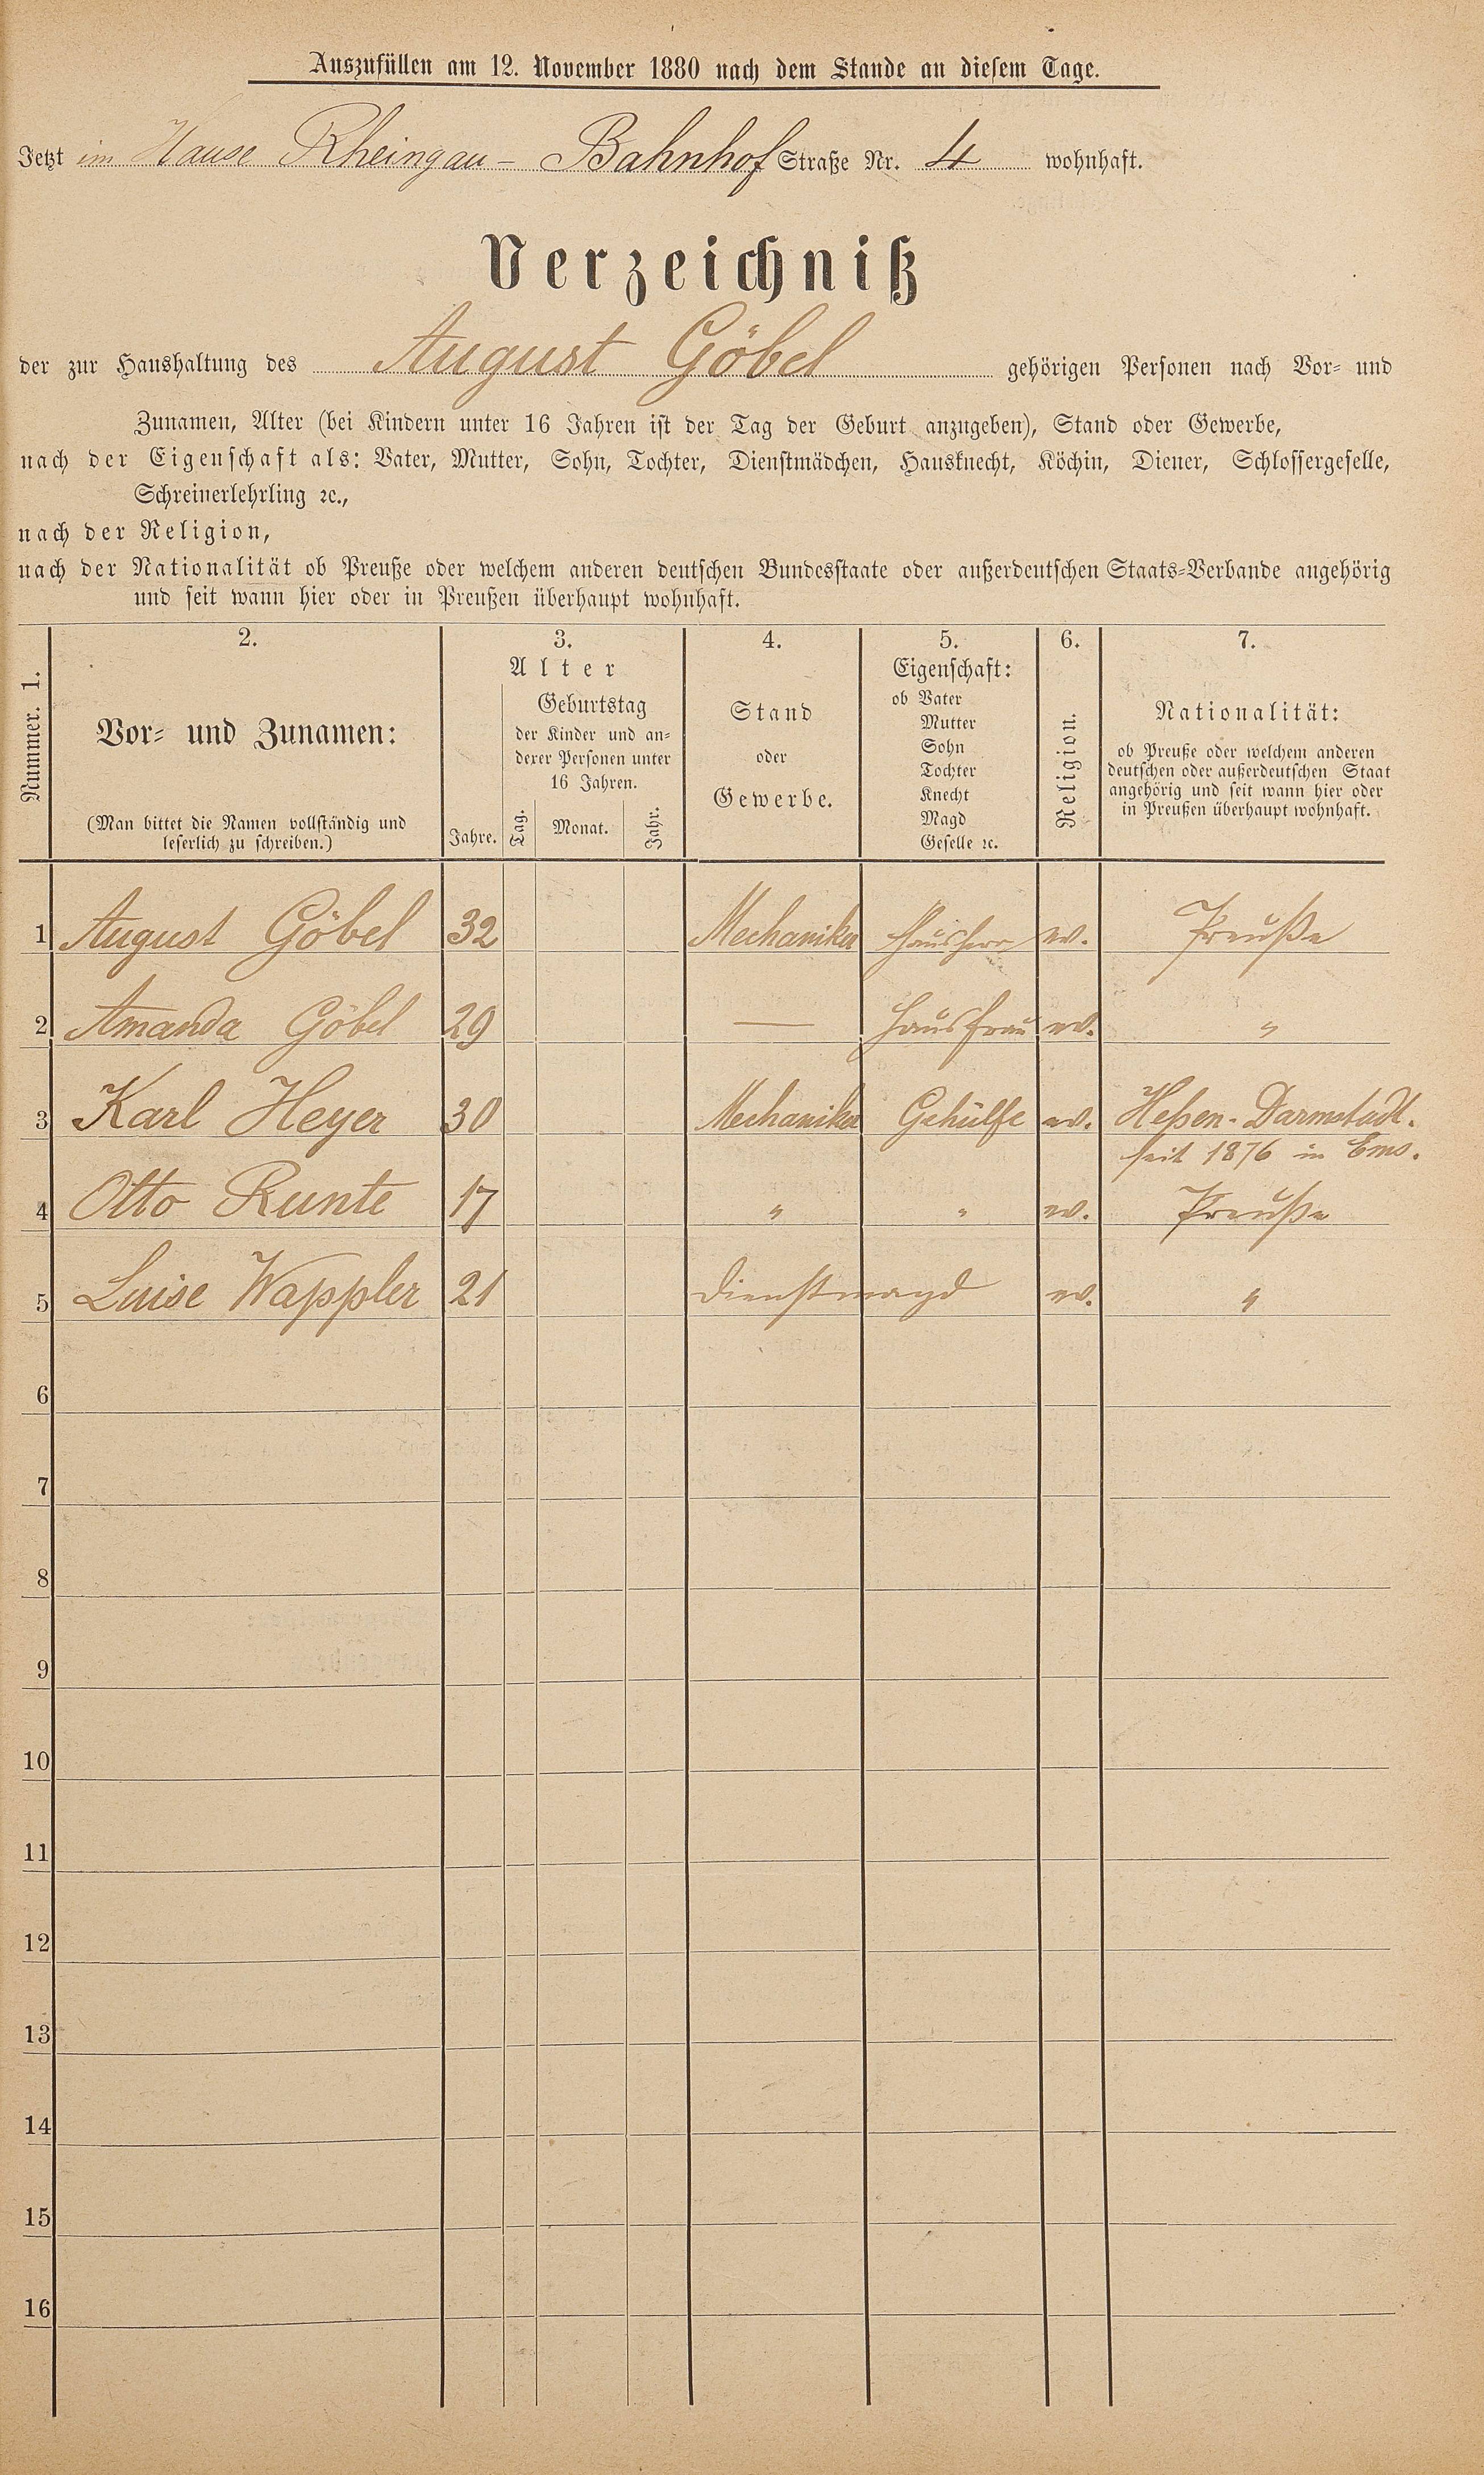 Auszufüllen am 12. November 1880 nach dem Stande an diesem Tage.
Jetzt im Hause Rheingau- Bahnhof Straße Nr. 4 wohnhaft.
Verzeichniß
der zur Haushaltung des August Göbel gehörigen Personen nach Vor- und
Zunamen, Alter (bei Kindern unter 16 Jahren ist der Tag der Geburt anzugeben), Stand oder Gewerbe,
nach der Eigenschaft als: Vater, Mutter, Sohn, Tochter, Dienstmädchen, Hausknecht, Köchin, Diener, Schlossergeselle,
Schreinerlehrling ꝛc.,
nach der Religion,
nach der Nationalität ob Preuße oder welchem anderen deutschen Bundesstaate oder außerdeutschen Staats-Verbande angehörig
und seit wann hier oder in Preußen überhaupt wohnhaft.
Nummer. 1.
2.
Vor- und Zunamen:
(Man bittet die Namen vollständig und
leserlich zu schreiben.)
3.
Alter
Jahre.
Geburtstag
der Kinder und an-
derer Personen unter
16 Jahren.
Tag. Monat. Jahr.
4.
Stand
oder
Gewerbe.
5.
Eigenschaft:
ob Vater
Mutter
Sohn
Tochter
Knecht
Magd
Geselle ꝛc.
6.
Religion.
7.
Nationalität:
ob Preuße oder welchem anderen
deutschen oder außerdeutschen Staat
angehörig und seit wann hier oder
in Preußen überhaupt wohnhaft.
1 August Göbel 32 Mechaniker Hausherr ev. Preuße
2 Amanda Göbel 29 — Hausfrau ev. "
3 Karl Heyer 30 Mechaniker Gehülfe ev. Heßen-Darmstadt.
seit 1876 in Ems.
4 Otto Runte 17 " " ev. Preuße
5 Luise Wappler 21 Dienstmagd ev. "
6
7
8
9
10
11
12
13
14
15
16